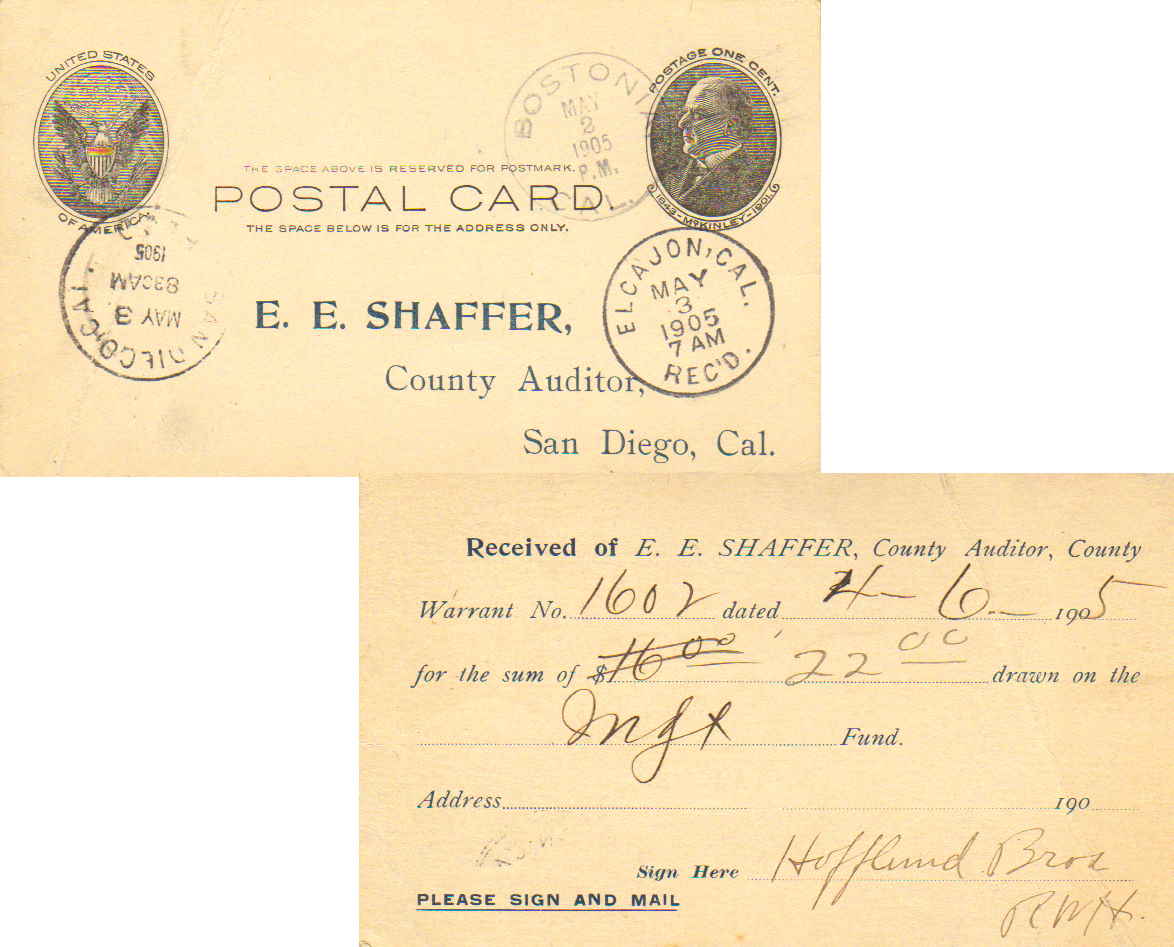 UNITED STATES
OF AMERICA
BOSTONIA
MAY
2
1905
P.M.
CAL.
POSTAGE ONE CENT.
1843-McKINLEY-1901
THE SPACE ABOVE IS RESERVED FOR POSTMARK.
POSTAL CARD.
THE SPACE BELOW IS FOR THE ADDRESS ONLY.
SAN DIEGO, CAL.
MAY 3
830AM
1905
EL CAJON, CAL.
MAY
3
1905
7 AM
REC'D.
E. E. SHAFFER,
County Auditor,
San Diego, Cal.
Received of E. E. SHAFFER, County Auditor, County
Warrant No. 1602 dated 4-6- 1905
for the sum of $16 00 22 00 drawn on the
Fund.
Address 190
Sign Here Hofflund Bros
RWH.
PLEASE SIGN AND MAIL